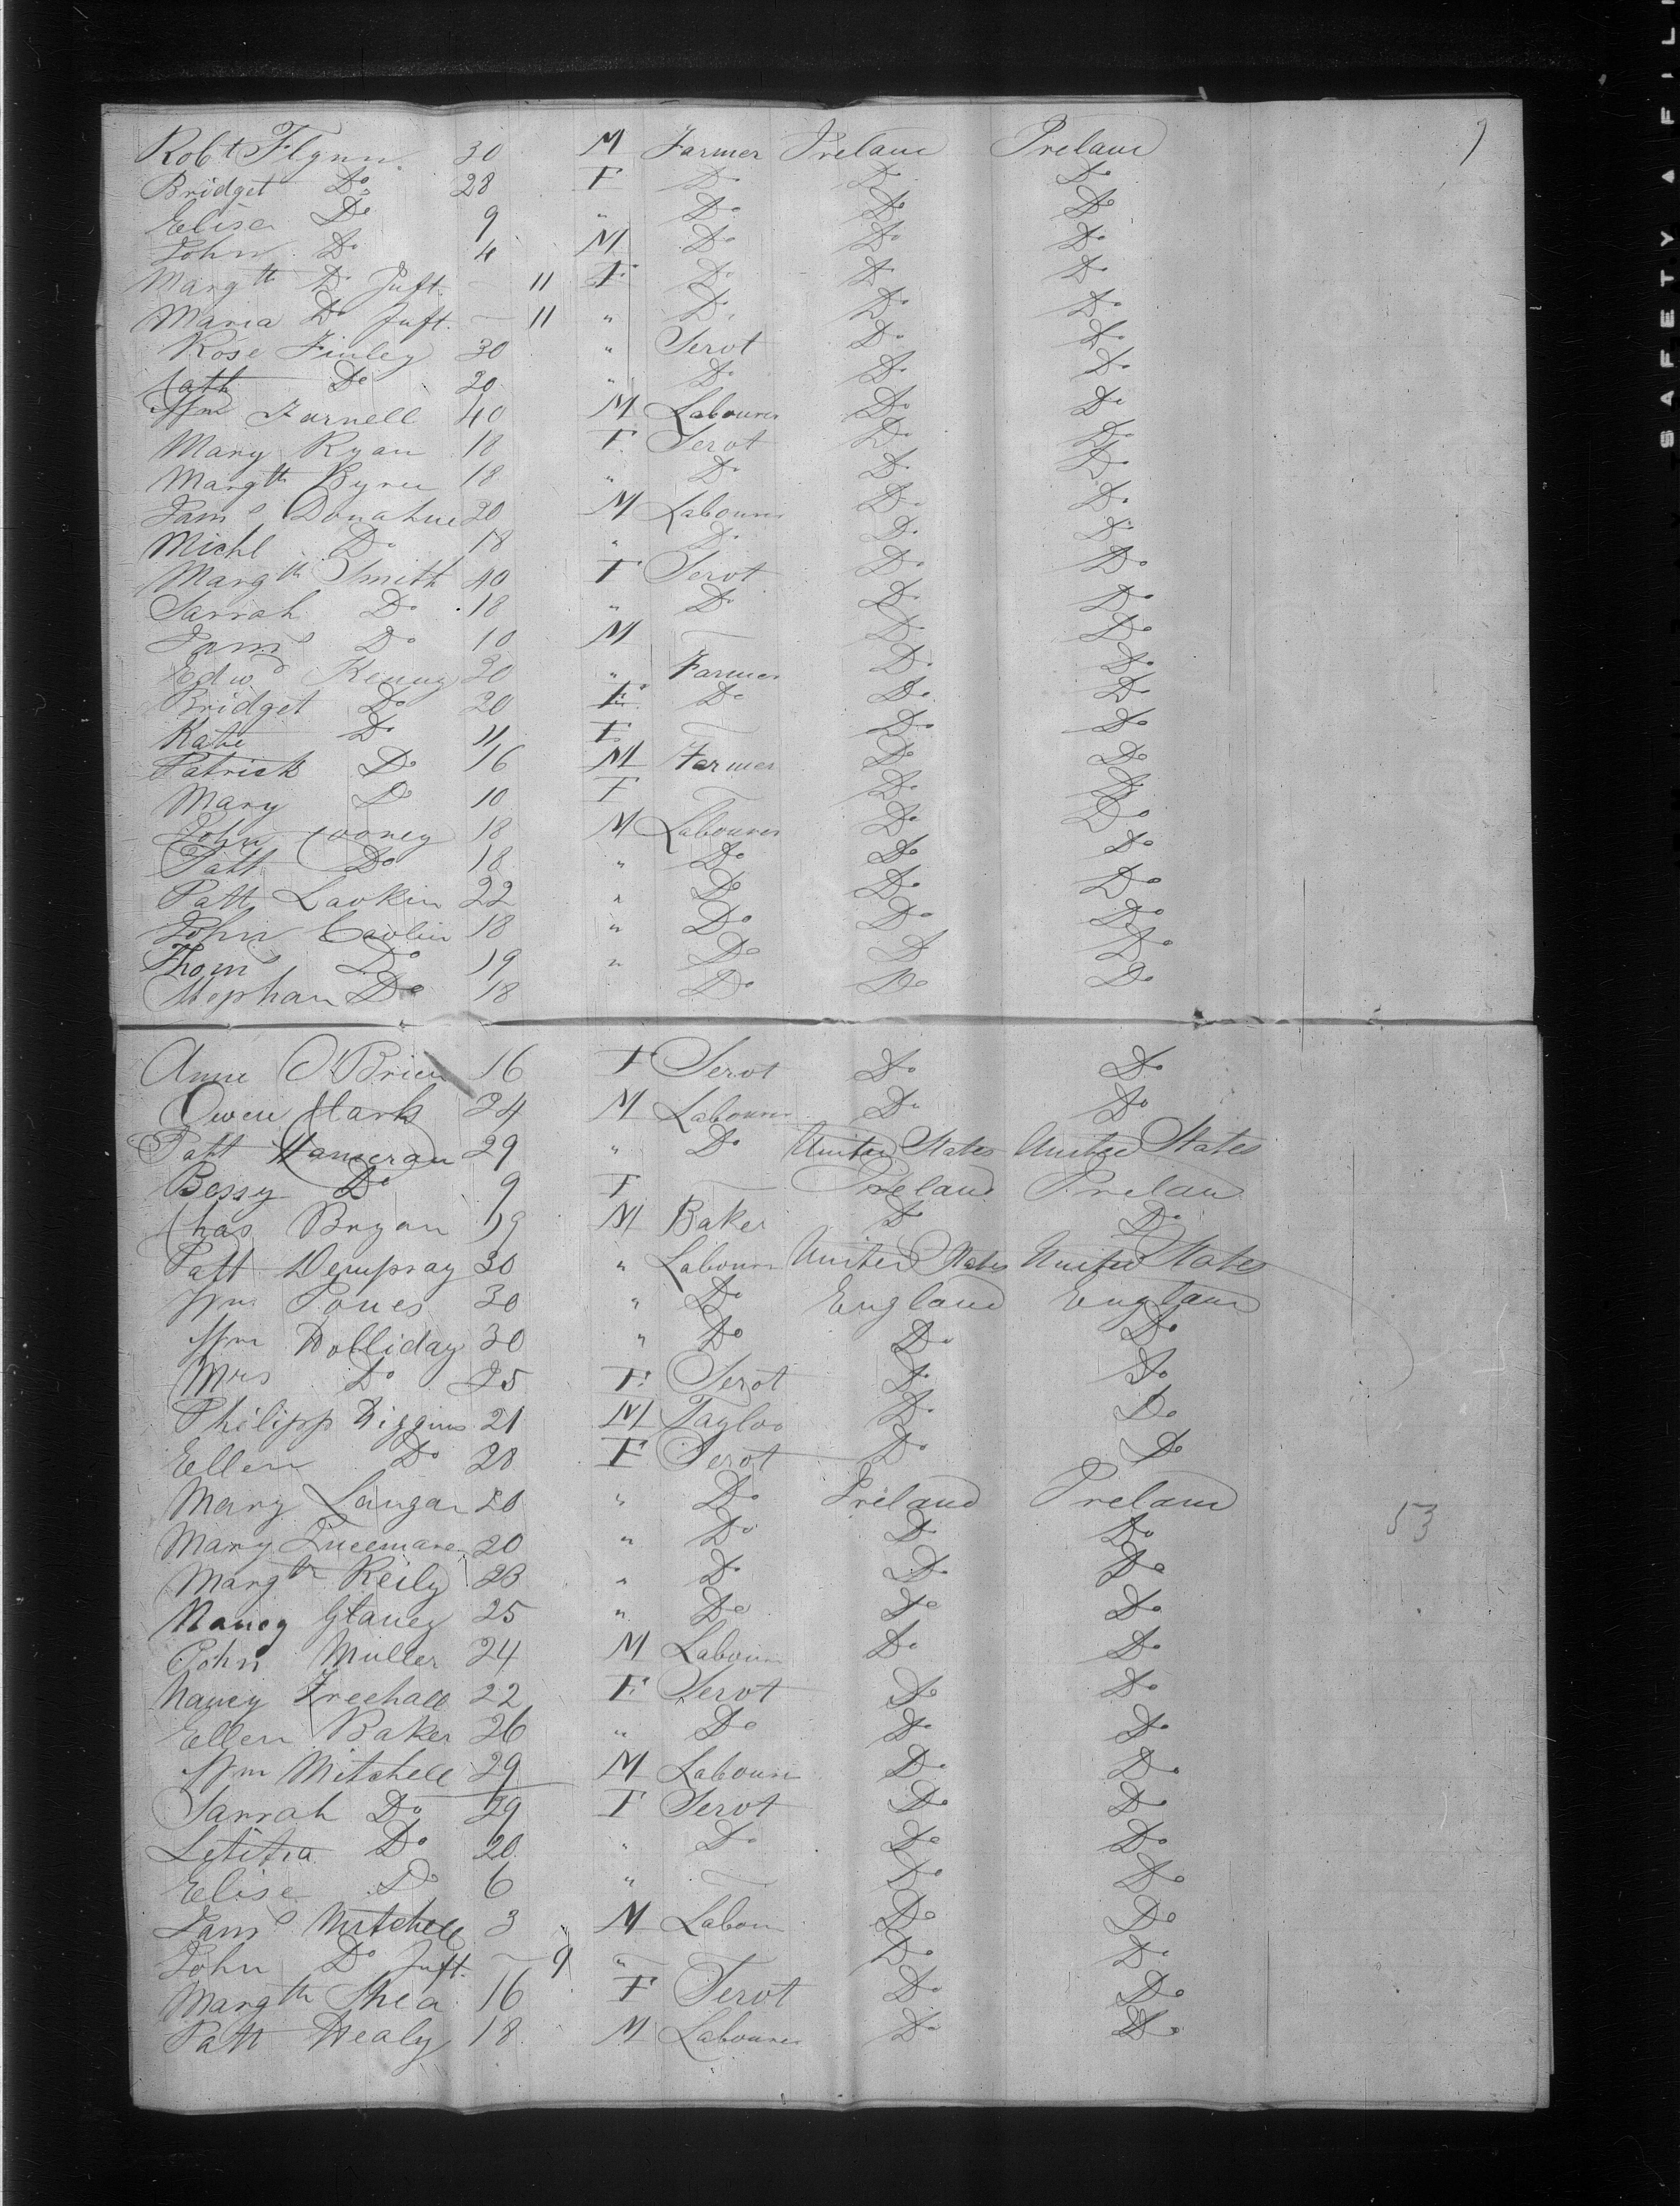 9
Robt Flynn 30 M Farmer Ireland Ireland
Bridget Do 28 F Do Do Do
Elisa Do 9 " Do Do Do
John Do 4 M Do Do Do
Margth Do Inft. — 11 F Do Do Do
Maria Do Inft. — 11 " Do Do Do
Rose Finley 30 " Servt Do Do
Cath Do 20 " Do Do Do
Wm Farnell 40 M Labourer Do Do
Mary Ryan 18 F Servt Do Do
Margth Byrne 18 " Do Do Do
Jams Donahue 20 M Labourer Do Do
Michl Do 18 " Do Do Do
Margth Smith 40 F Servt Do Do
Sarrah Do 18 " Do Do Do
Jams Do 10 M — Do Do
Edwd Kenny 30 " Farmer Do Do
Bridget Do 20 F Do Do Do
Kate Do 11 F — Do Do
Patrick Do 16 M Farmer Do Do
Mary Do 10 F — Do Do
John Cooney 18 M Labourer Do Do
Patt Do 18 " Do Do Do
Patt Larkin 22 " Do Do Do
John Carlin 18 " Do Do Do
Thoms Do 19 " Do Do Do
Stephan Do 18 Do Do Do
Anne O'Brien 16 F Servt Do Do
Owen Clark 24 M Labourer Do Do
Patt 29 " Do United States United States
Bessy Do 9 F — Ireland Ireland
Chas Bryan 19 M Baker Do Do
Patt Dempsay 30 " Labourer United States United States
Wm Jones 30 " Do England England
Wm Holliday 30 " Do Do Do
Mrs Do 25 F Servt Do Do
Philipp Higgins 21 M Taylor Do Do
Ellen Do 28 F Servt Do Do
Mary Langan 20 " Do Ireland Ireland
53
Mary 20 " Do Do Do
Margth Reily 23 " Do Do Do
Nancy Glancy 25 " Do Do Do
John Muller 24 M Labour Do Do
Nancy Freehall 22 F Servt Do Do
Ellen Baker 26 " Do Do Do
Wm Mitchell 29 M Labourer Do Do
Sarrah Do 29 F Servt Do Do
Letitia Do 20 " Do Do Do
Elise Do 6 " — Do Do
Jams Mitchell 3 M Labour Do Do
John Do Inft. — 9 " — Do Do
Margth Shea 16 F Servt Do Do
Patt Healy 18 M Labourer Do Do
SAFETY FIL